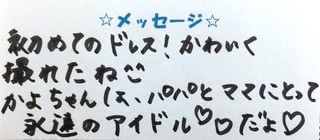 ☆メッセージ☆
初めてのドレス!かわいく
撮れたね
かよちゃんは、パパとママにとって
永遠のアイドル♡♡だよ♡